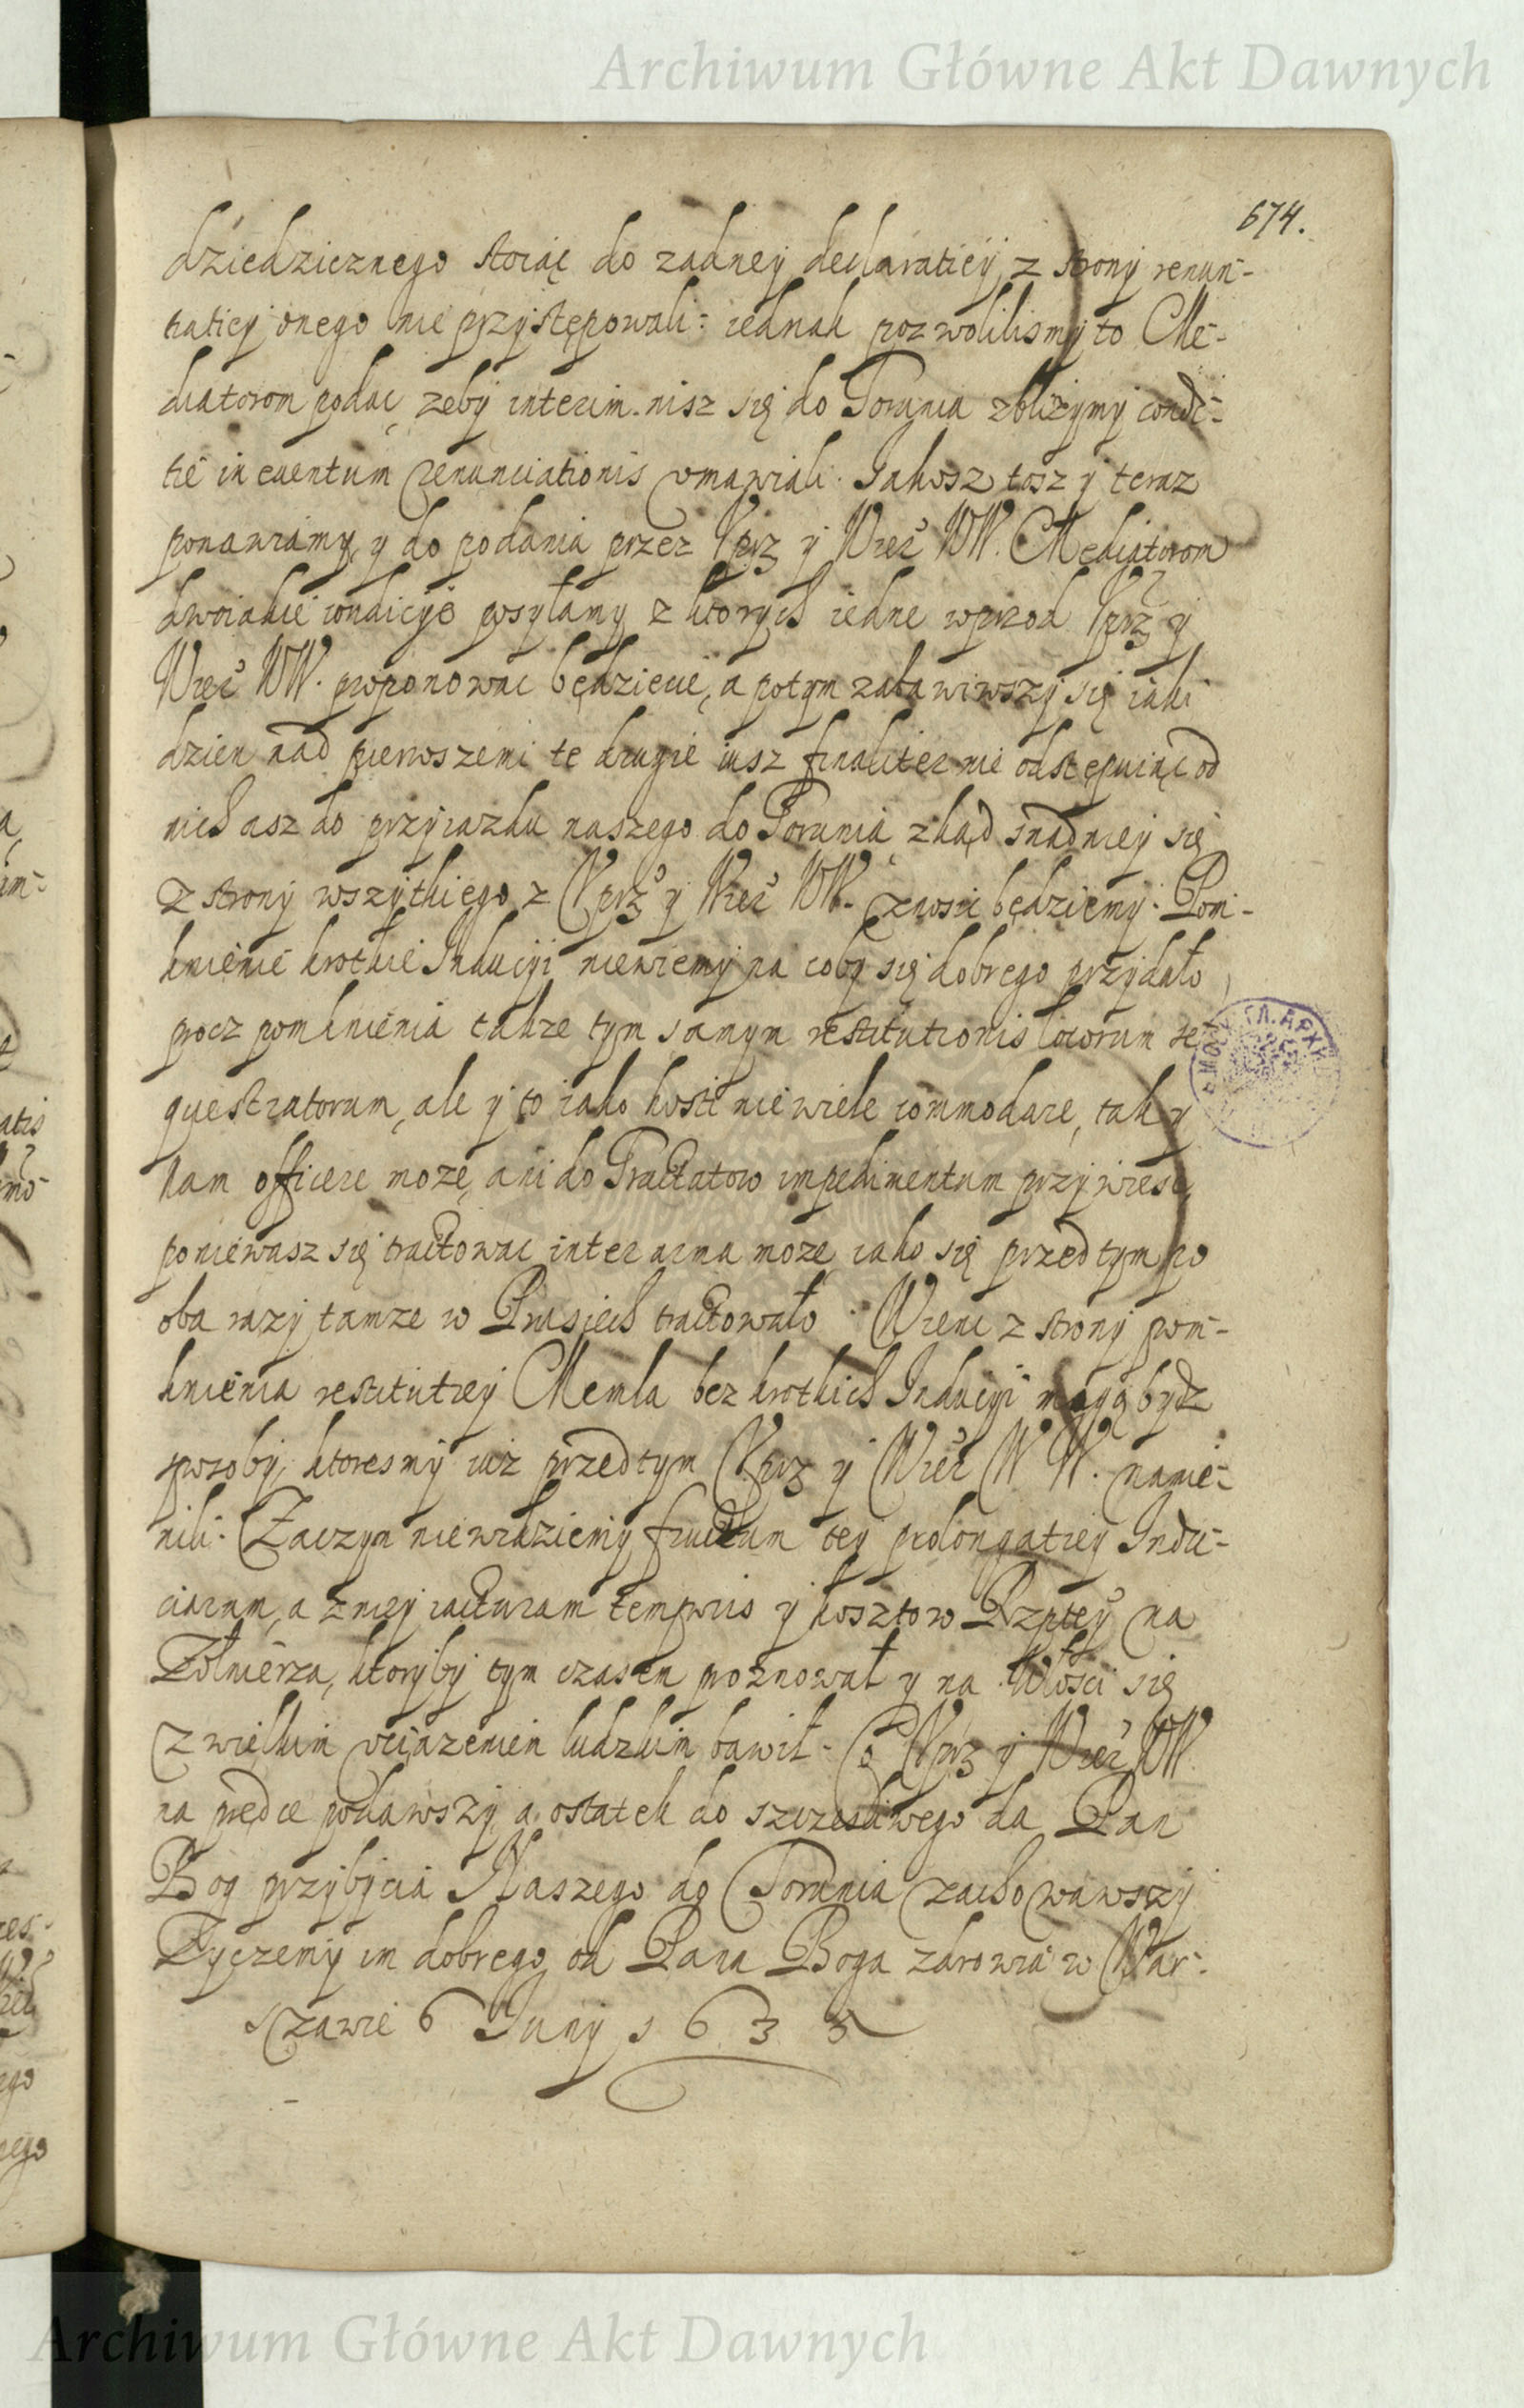 Archiwum Główne Akt Dawnych
674.
dziedzicznego stoiąc do zadney declaratiey z strony renun-
tiatiey onego nie przystępowali: iednak pozwolilismy to Me-
diatorom podac, zeby interim nisz się do Torunia zblizymy condi-
tie in euentum renunciationis vmawiali. Jakosz tosz y teraz
ponawiamy, y do podania przez Vprz y Wier WW. Mediatorom
dwoiakie condicye posyłamy z ktorych iedne wprzod Vprz y
Wier WW. proponowac będziecie, a potym zabawiwszy się iaki
dzien nad pierwszemi te drugie iusz finaliter nie odstępuiąc od
nich asz do przyiazdu naszego do Torunia zkąd snadniey się
z strony wszytkiego z Vprz y Wier WW. znosic będziemy. Pom-
knienie krotkie Inducyi niewiemy na coby się dobrego przydało
procz pomknienia takze tym samym restitutionis locorum se-
questratorum, ale y to iako hosti niewiele commodare, tak y
nam officere moze, ani do Tractatow impedimentum przywiesc,
poniewasz się tractowac inter arma moze iako się przedtym po
oba razy tamze w Prusiech tractowało. Wienc z strony pom-
knienia restitutiey Memla bez krotkich Inducyi mogą bydz
sposoby, ktoresmy iuz przedtym Vprz y Wier WW. namie-
nili. Zaczym niewidziemy fructum tey prolongatiey Indu-
ciarum, a zniey iacturam temporis y kosztow Rzptey na
Zołnierza, ktoryby tym czasem proznował y na Włosci się
z wielkim vciązeniem ludzkim bawił. Co Vprz y Wier WW.
na prędce podawszy, a ostatek do szczesliwego da Pan
Bog przybycia Naszego do Torunia zachowawszy
Zyczemy im dobrego od Pana Boga zdrowia w War-
szawie 6 Juny 1635
Archiwum Główne Akt Dawnych